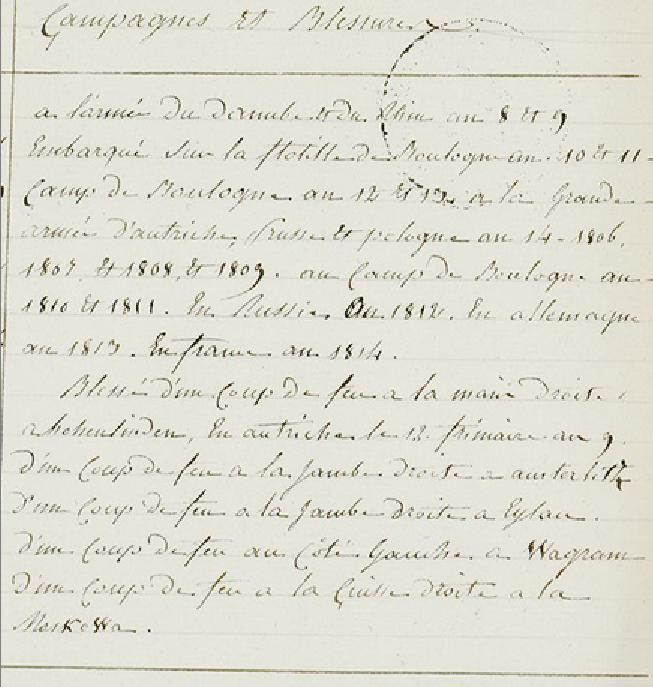 Campagnes et Blessures
a l'armée du danube et du Rhin an 8 et 9
Embarqué sur la flotille de Boulogne an 10 et 11
Camp de Boulogne an 12 et 13. a la Grande
armée d'autriche, Prusse et pologne an 14-1806,
1807, et 1808, et 1809. au Camp de Boulogne an
1810 et 1811. En Russie an 1812. En allemagne
an 1813. En france an 1814.
Blessé d'un Coup de feu a la main droite
a hohenlinden, En autriche le 12 frimaire an 9.
d'un Coup de feu a la Jambe droite a austerlitz
d'un Coup de feu a la Jambe droite a Eylau.
d'un Coup de feu au Côté Gauche a Wagram
d'un Coup de feu a la Cuisse droite a la
Moskowa.